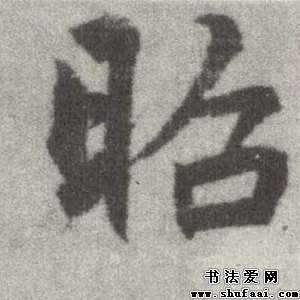 昭
书法爱网
www.shufaai.com